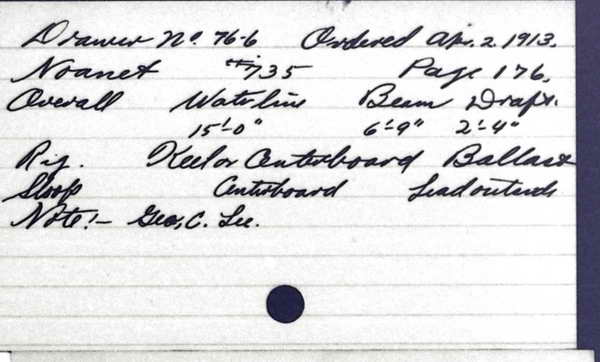 Drawer No. 76-6 Ordered Apr. 2. 1913.
Noanet #735 Page 176.
Overall Waterline Beam Draft.
15'-0" 6'-9" 2'-4"
Rig. Keel or Centerboard Ballast
Sloop Centerboard Lead outside
Note:- Geo. C. Lee.